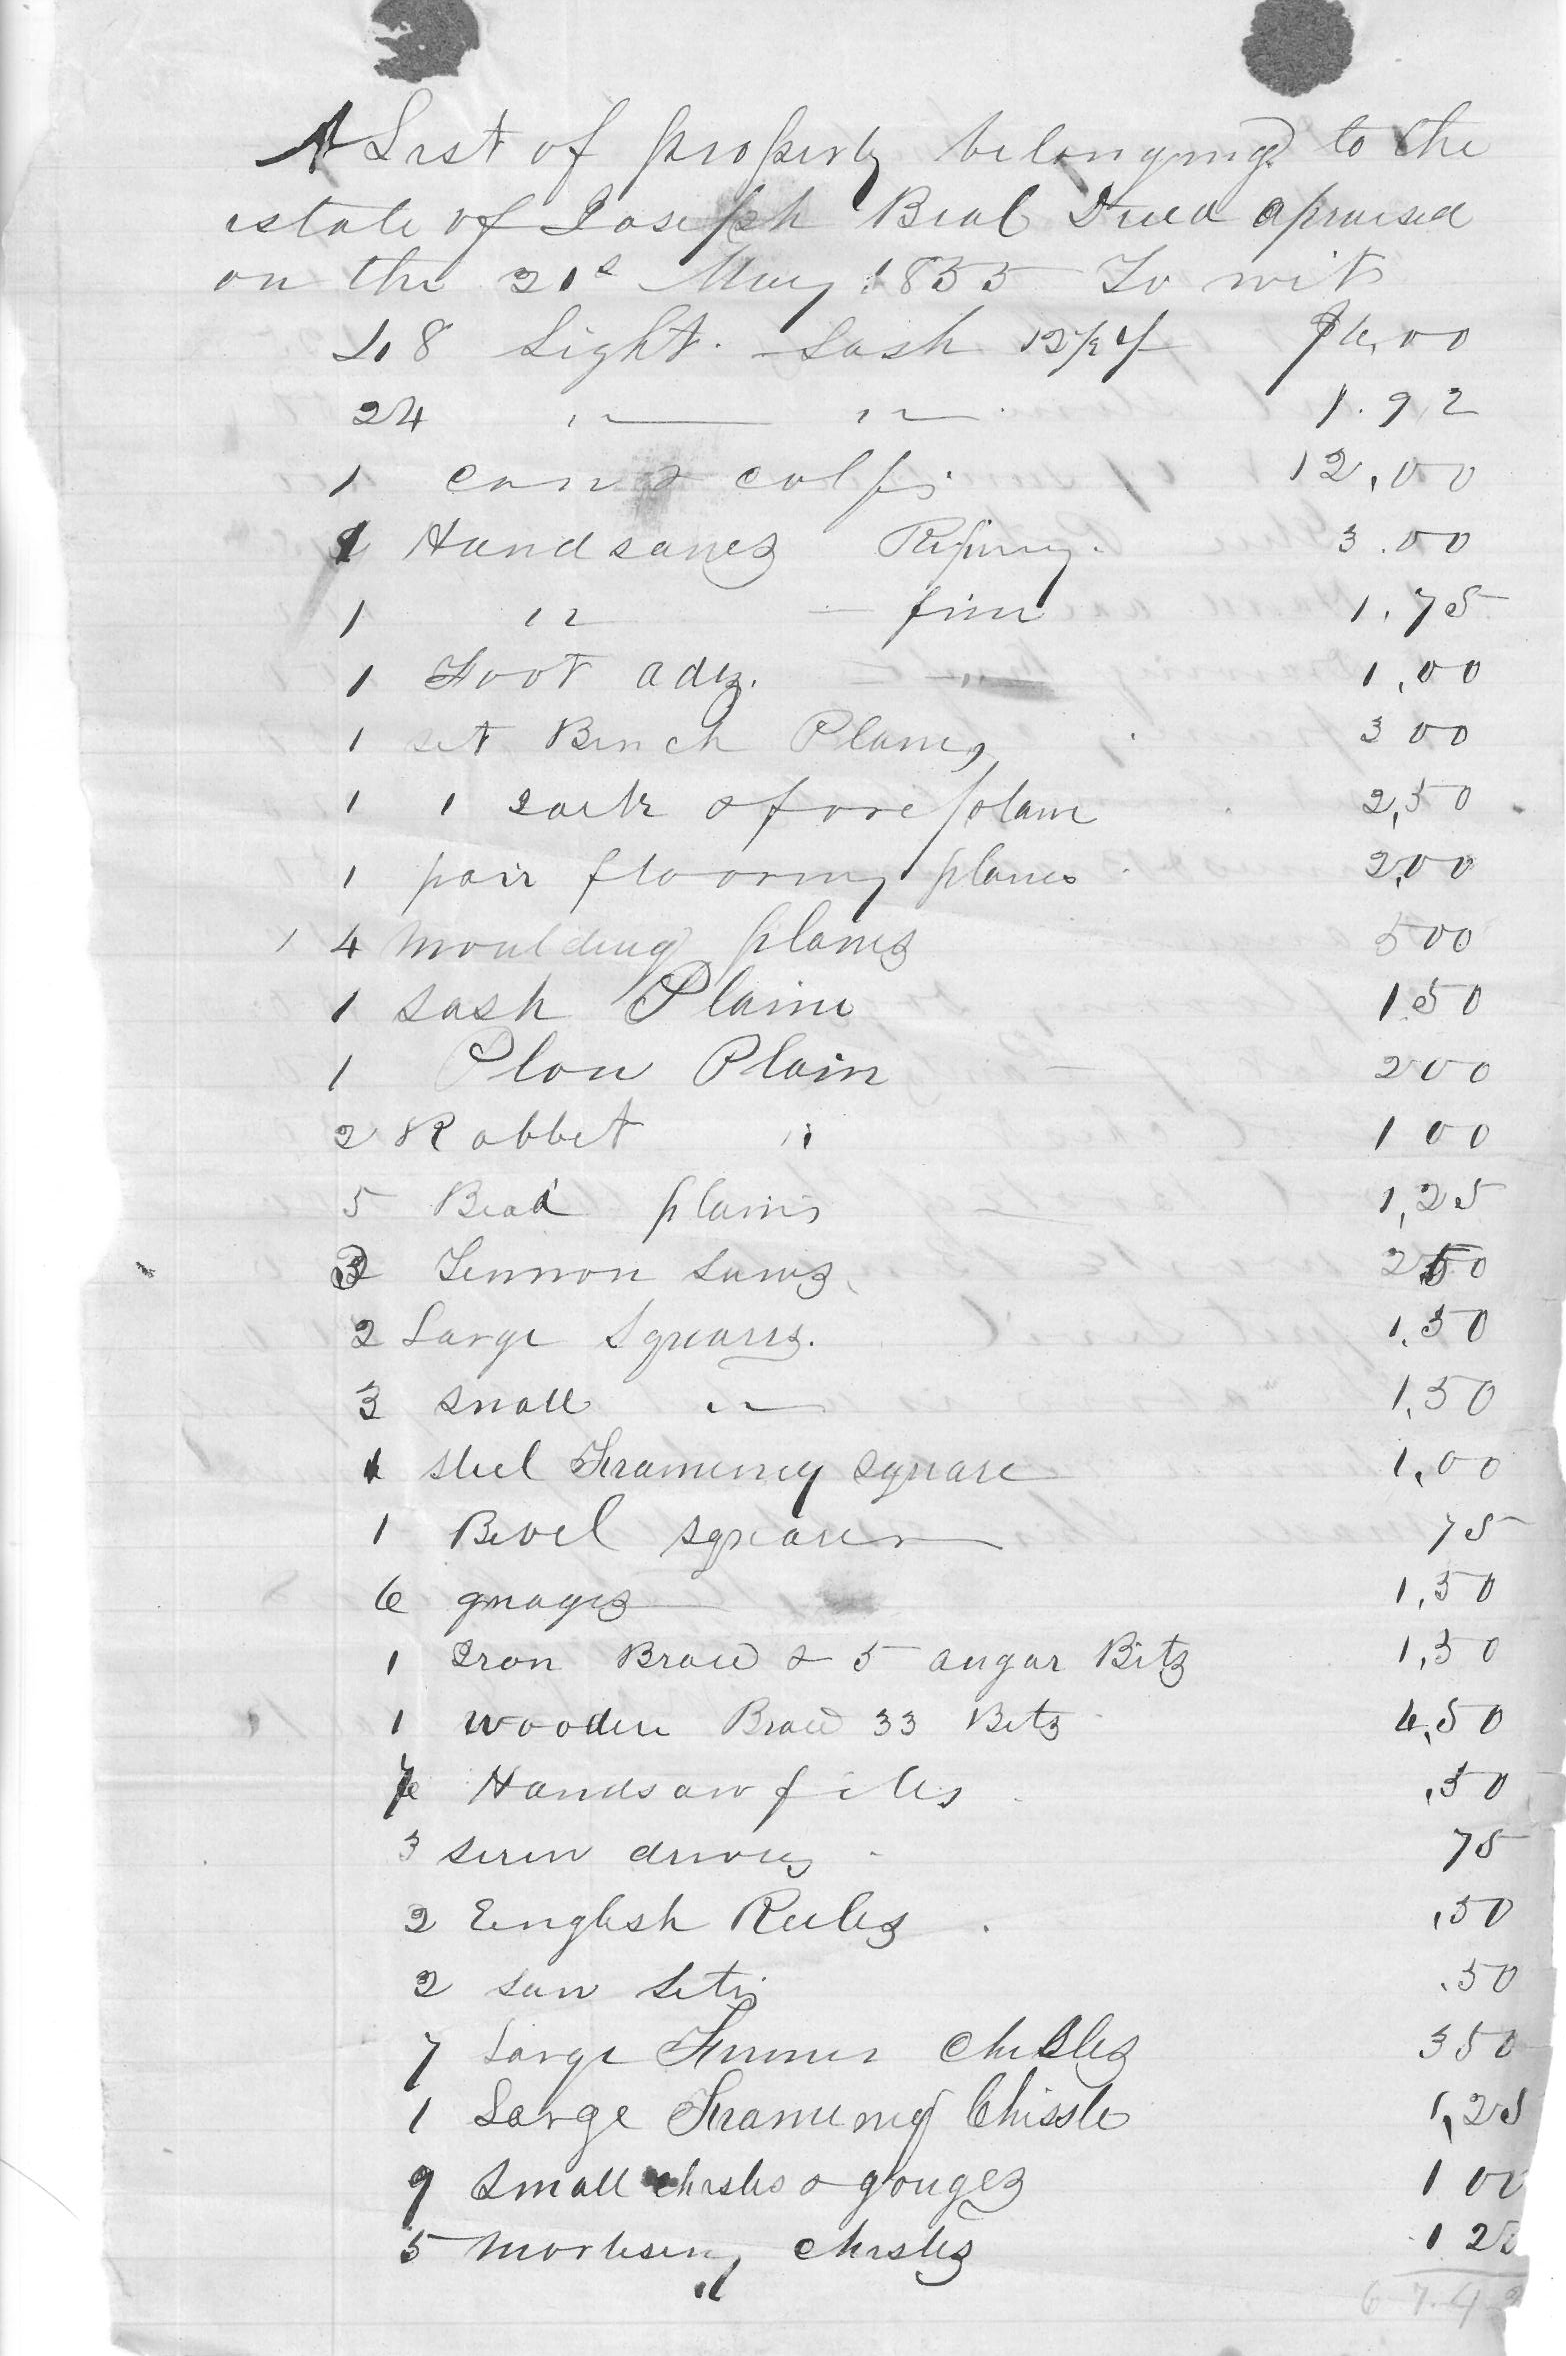 A List of property belonging to the
estate of Joseph Beal Decd apraised
on the 21s May 1855 To wit
48 Light Sash $6,00
24 " " 1.92
1 cow & calf 12,00
Handsawes Riping 3.00
1 " fine 1.75
1 Foot adz. 1,00
1 set Bench Planes 3 00
1 1 Jack & fore plane 2,50
1 pair flooring planes 2,00
14 moulding planes 5 00
1 sash Plaine 1 50
1 Plow Plain 2 00
2 Rabbet " 1 00
5 Bead plains 1,25
3 Tennon saws 2 50
2 Large Squares. 1.50
3 small " 1,50
1 steel Frameing square 1,00
1 Bevel square 75
6 guages 1,50
1 Iron Brace & 5 augar Bits 1,50
1 wooden Brace 33 Bits 4,50
Handsaw files ,50
3 screw drivers 75
2 English Rules ,50
2 saw sets .50
7 Large Firmer Chisles 3 50
1 Large Frameing Chissle 1,25
9 Small chisles & gouges 1 00
5 Mortising chisles 1 25
67.42